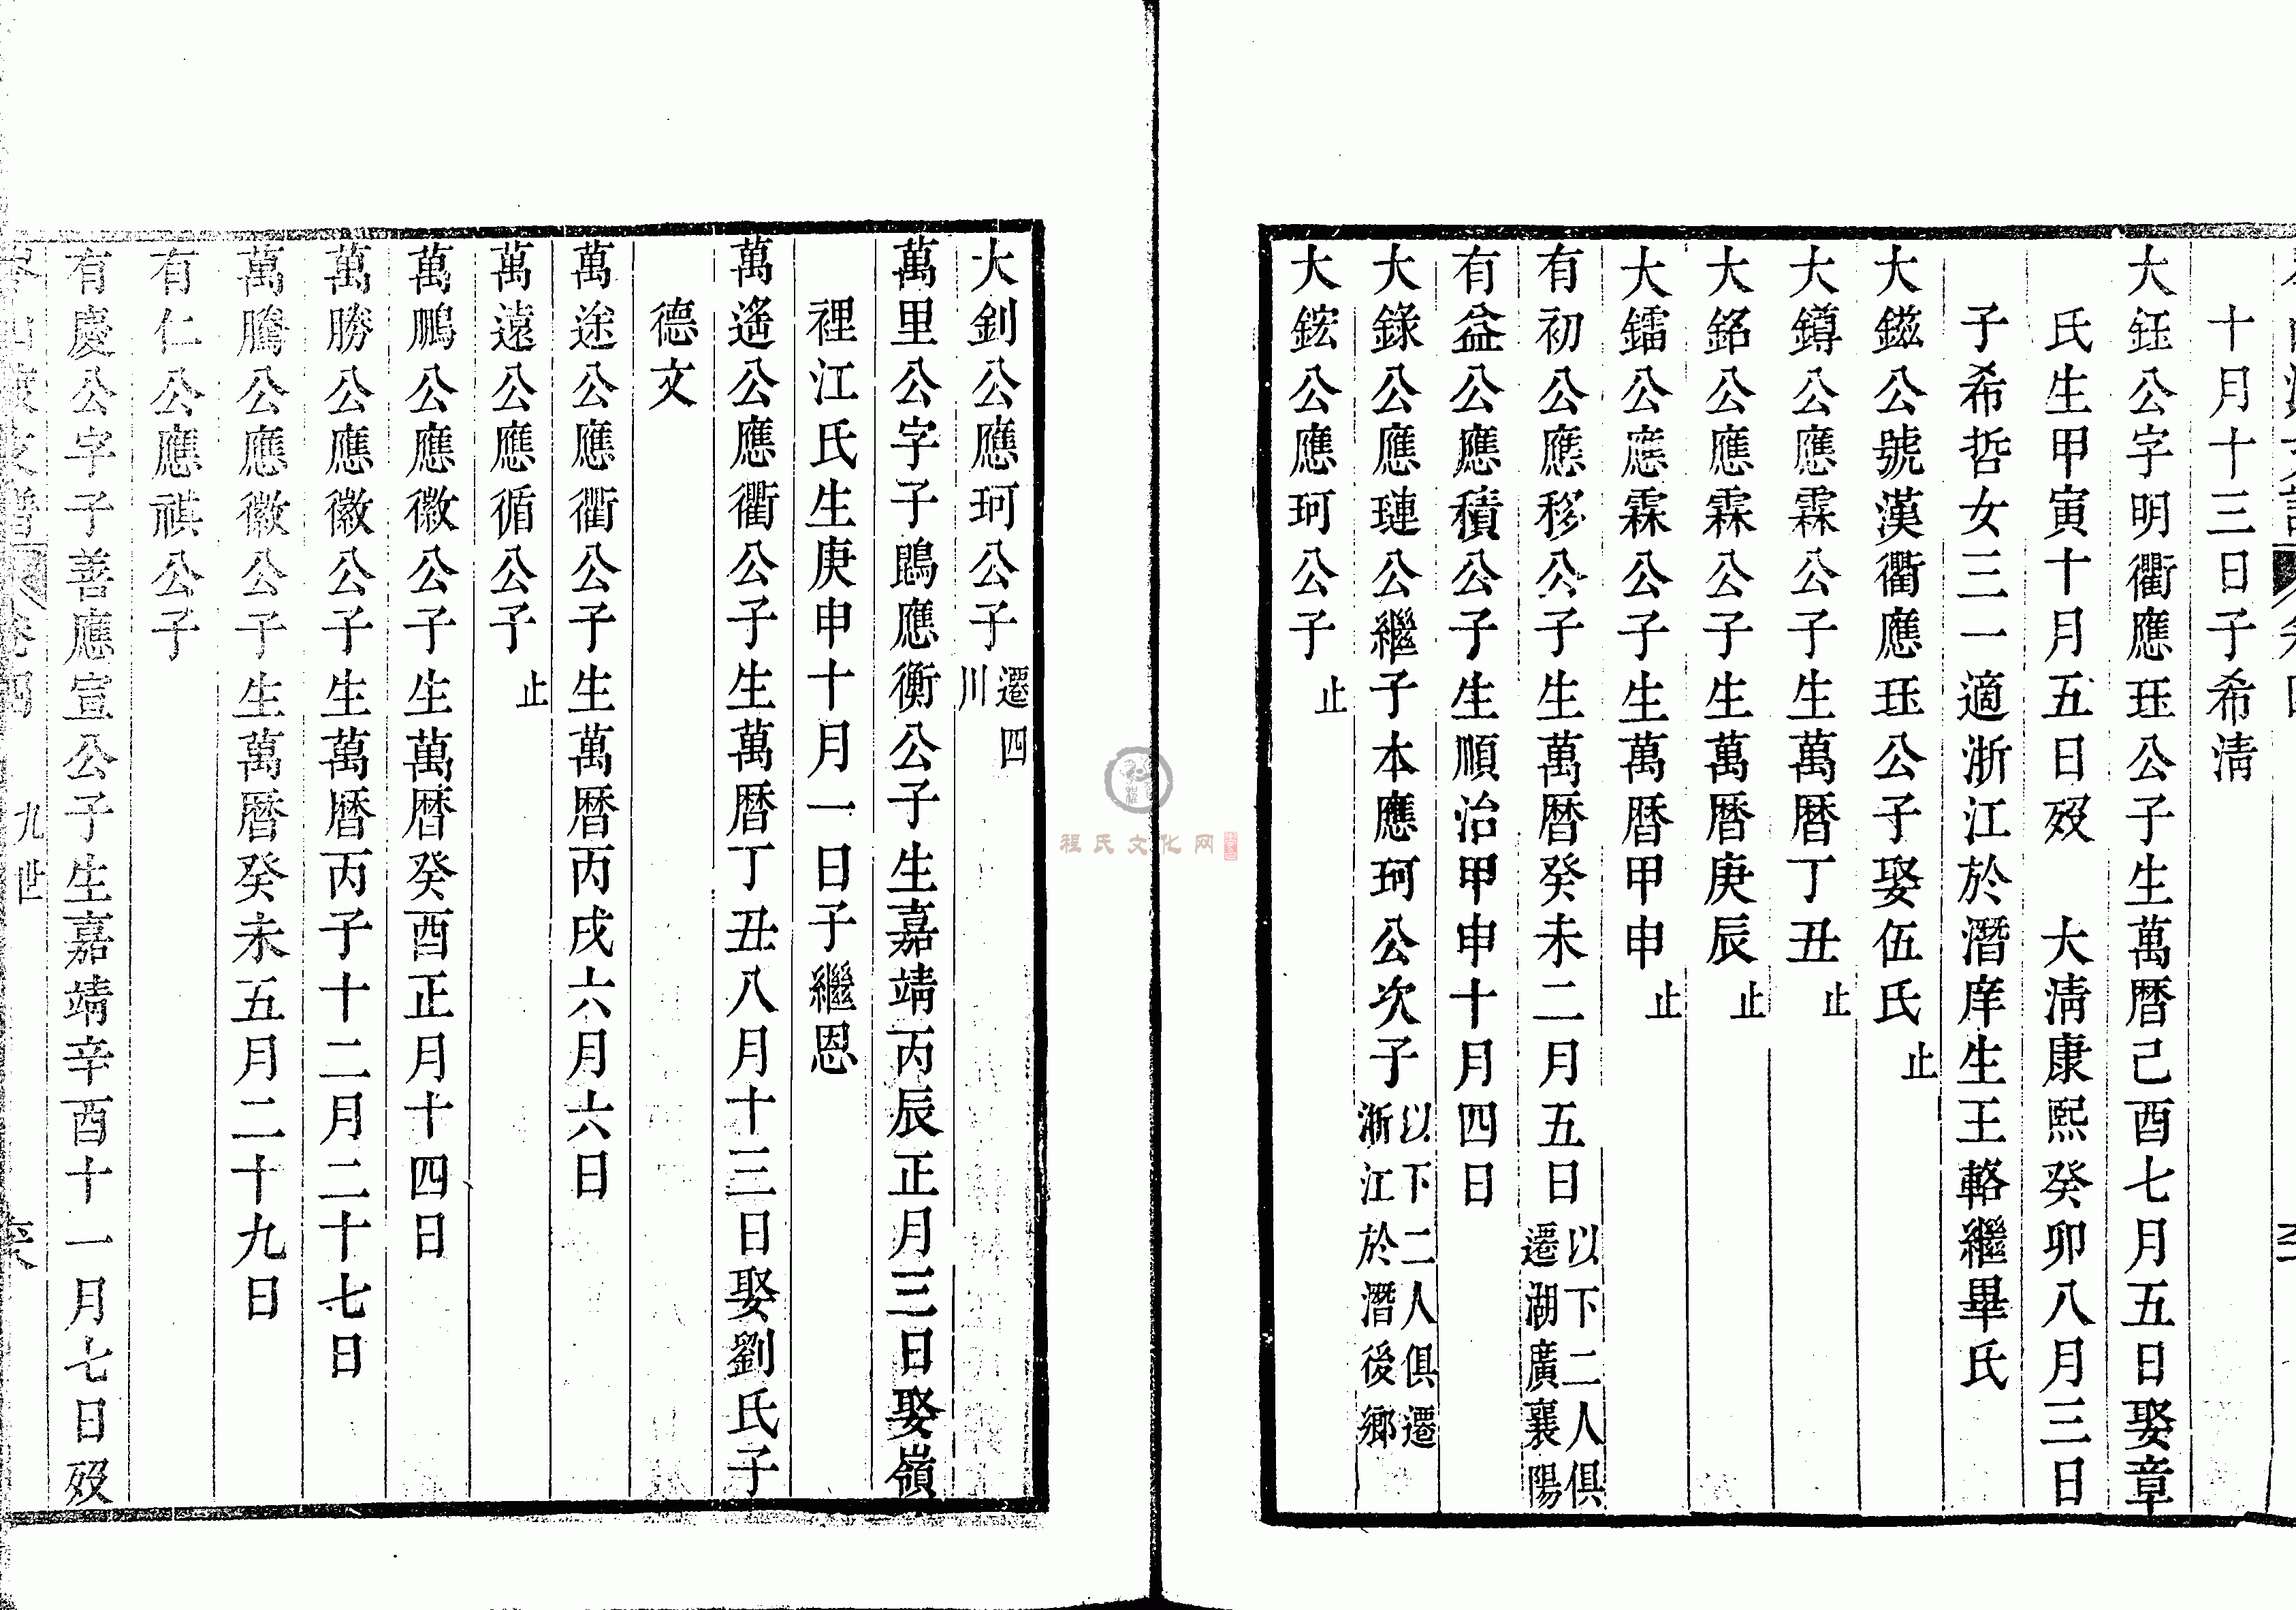 十月十三日子希清
大鈺公字明衢應珏公子生萬曆己酉七月五日娶章
氏生甲寅十月五日歿 大清康熙癸卯八月三日
子希哲女三一適浙江於潛庠生王輅繼畢氏
大鎡公號漢衢應珏公子娶伍氏止
大鐏公應霖公子生萬曆丁丑止
大銘公應霖公子生萬曆庚辰止
大鐳公應霖公子生萬曆甲申止
有初公應移公子生萬曆癸未二月五日以下二人俱遷湖廣襄陽
有益公應積公子生順治甲申十月四日
大錄公應璉公繼子本應珂公次子以下二人俱遷浙江於潛後鄉
大鋐公應珂公子止
大釗公應珂公子遷四川
萬里公字子鵾應衡公子生嘉靖丙辰正月三日娶嶺
裡江氏生庚申十月一日子繼恩
萬遙公應衢公子生萬曆丁丑八月十三日娶劉氏子
德文
萬途公應衢公子生萬曆丙戌六月六日
萬遠公應循公子止
萬鵬公應徵公子生萬曆癸酉正月十四日
萬勝公應徵公子生萬曆丙子十二月二十七日
萬騰公應徵公子生萬曆癸未五月二十九日
有仁公應祺公子
有慶公字子善應宣公子生嘉靖辛酉十一月七日歿
九世
程氏文化网